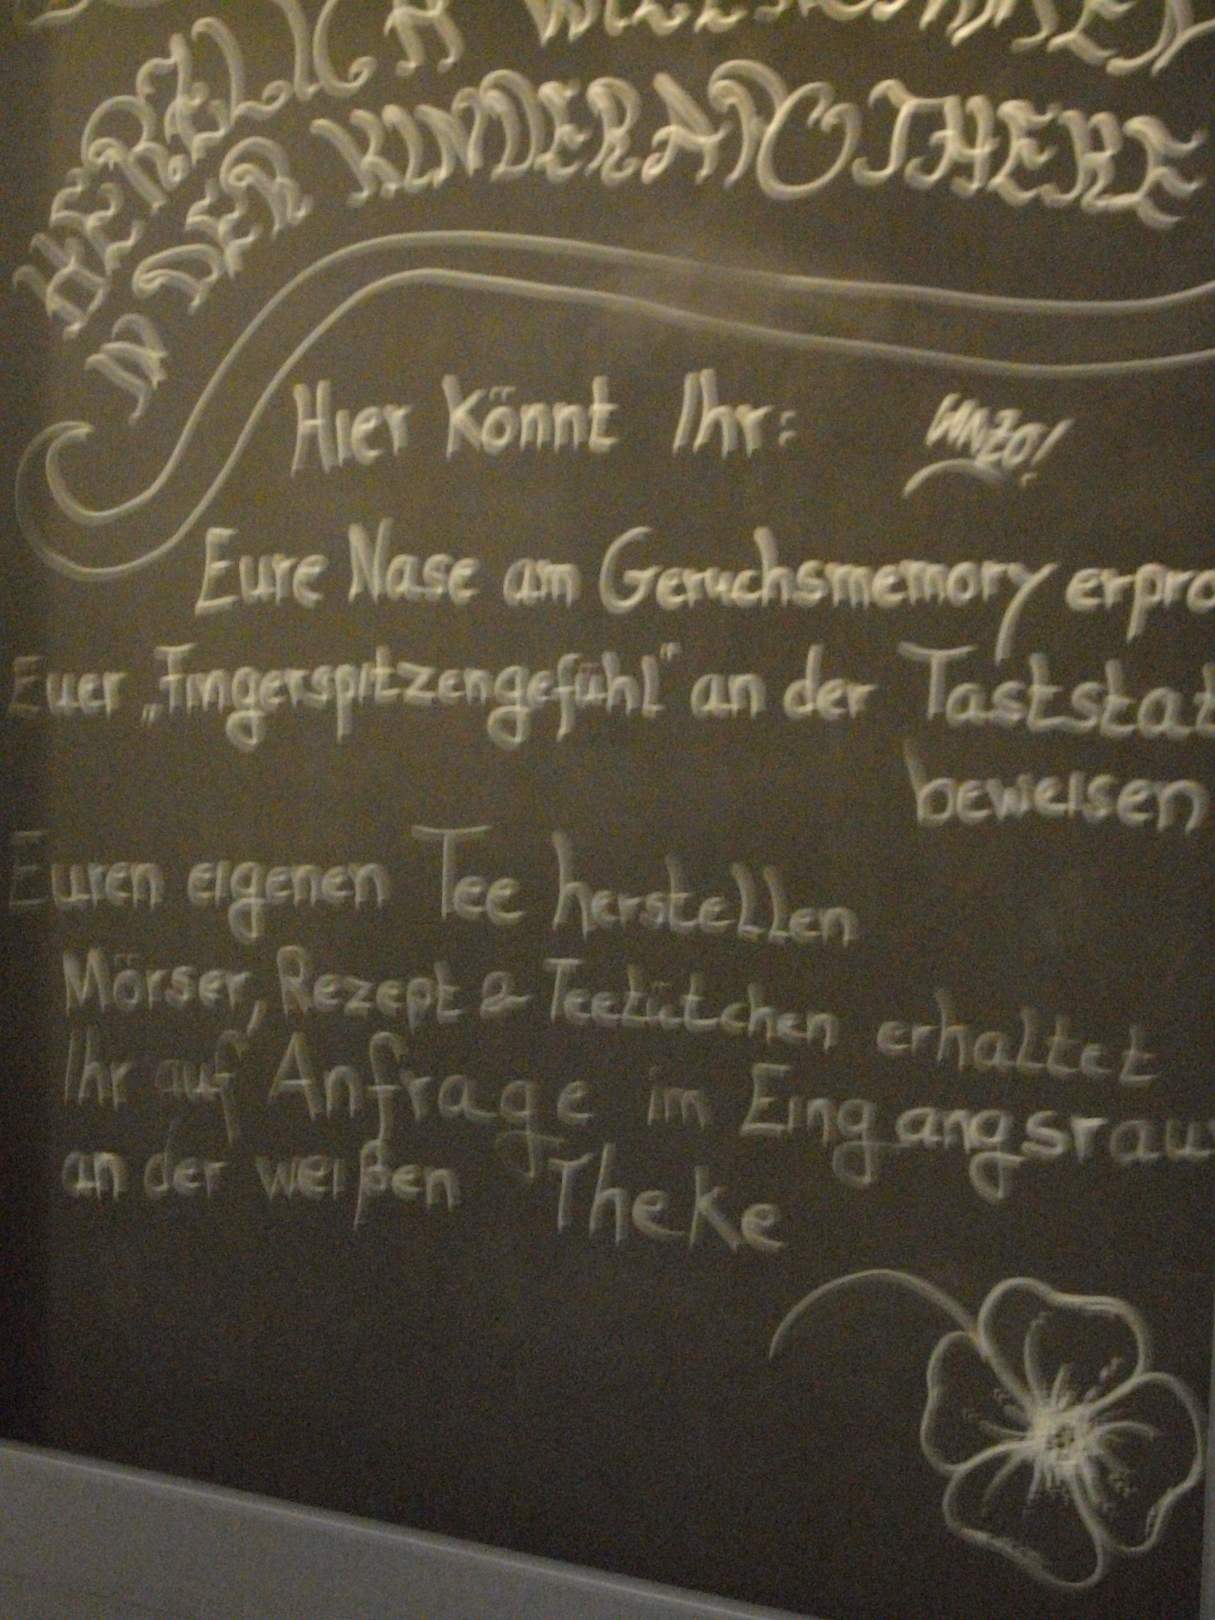 HERZLICH WILLKOMMEN
IN DER KINDERAPOTHEKE
Hier könnt Ihr:
Eure Nase am Geruchsmemory erpro
Euer „Fingerspitzengefühl" an der Taststat
beweisen
Euren eigenen Tee herstellen
Mörser, Rezept & Teetütchen erhaltet
Ihr auf Anfrage im Eingangsrau
an der weißen Theke